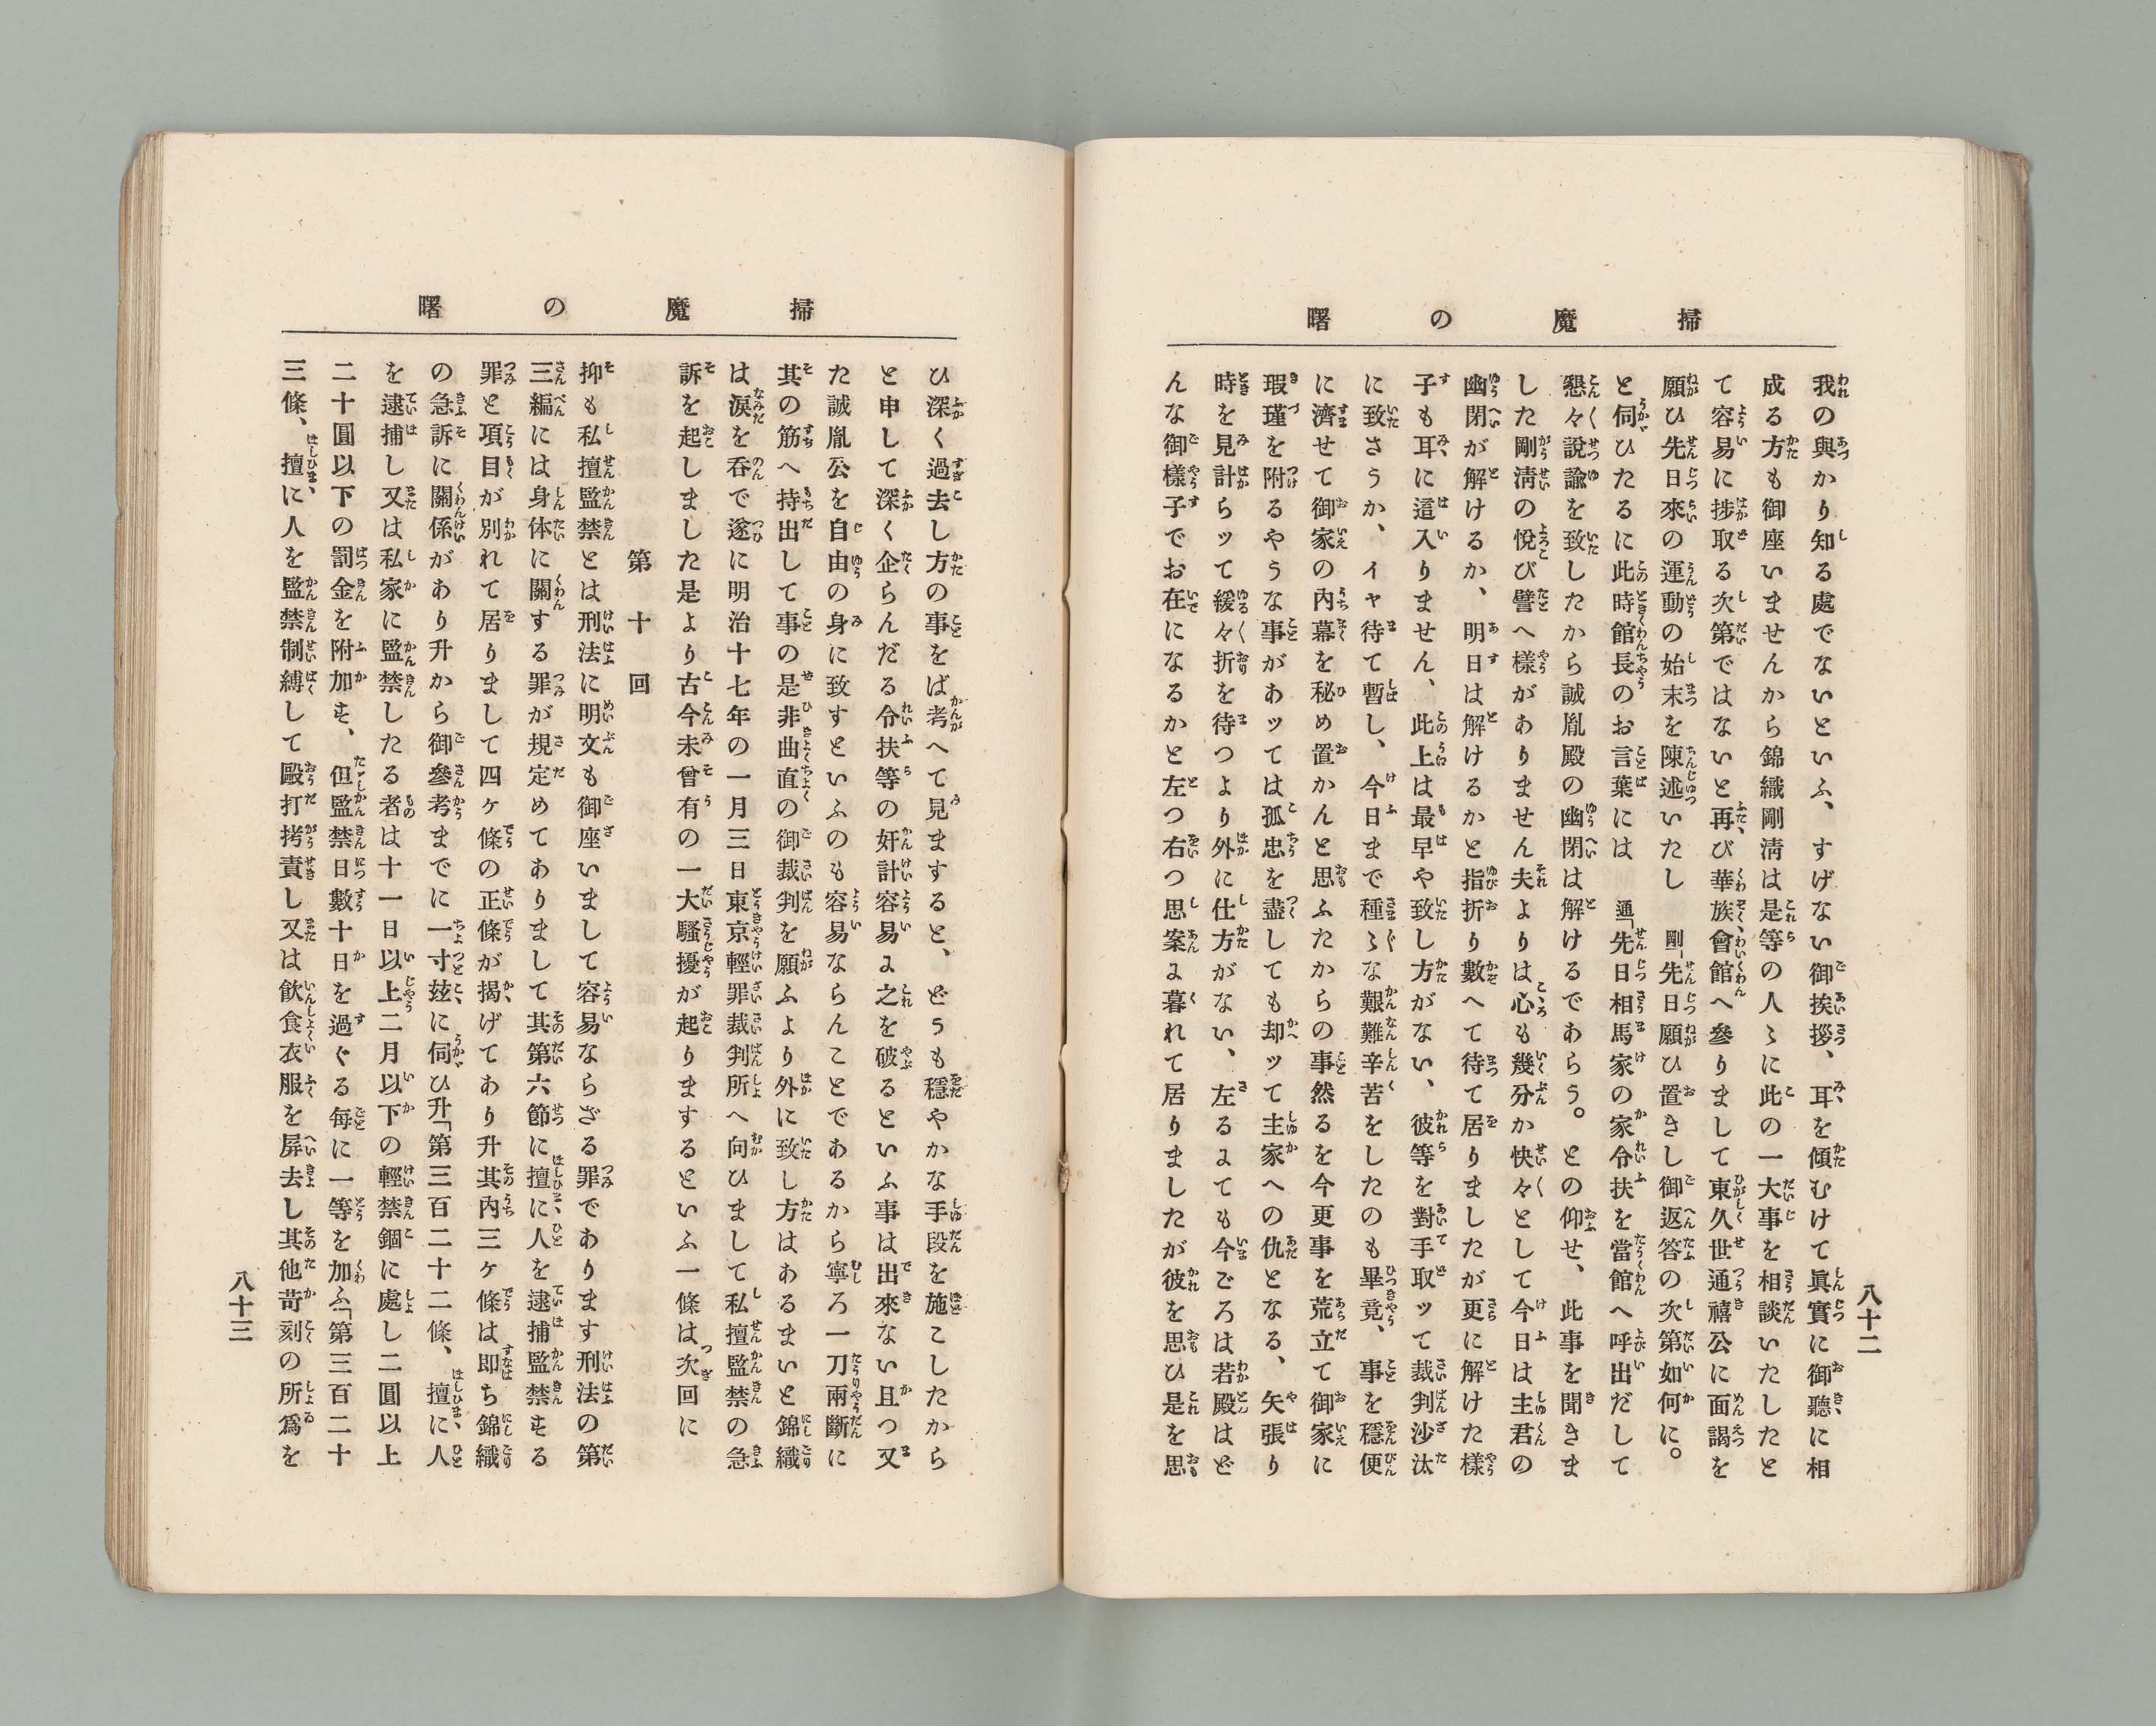 掃魔の曙
八十二
我の與かり知る處でないといふ、すげない御挨拶、耳を傾むけて眞實に御聽に相
成る方も御座いませんから錦織剛淸は是等の人〻に此の一大事を相談いたしたと
て容易に捗取る次第ではないと再び華族會館へ參りまして東久世通禧公に面謁を
願ひ先日來の運動の始末を陳述いたし　剛「先日願ひ置きし御返答の次第如何に。
と伺ひたるに此時館長のお言葉には　通「先日相馬家の家令扶を當館へ呼出だして
懇々說諭を致したから誠胤殿の幽閉は解けるであらう。との仰せ、此事を聞きま
した剛淸の悅び譬へ樣がありません夫よりは心も幾分か快々として今日は主君の
幽閉が解けるか、明日は解けるかと指折り數へて待て居りましたが更に解けた樣
子も耳に這入りません、此上は最早や致し方がない、彼等を對手取ッて裁判沙汰
に致さうか、イヤ待て暫し、今日まで種〻な艱難辛苦をしたのも畢竟、事を穩便
に濟せて御家の內幕を秘め置かんと思ふたからの事然るを今更事を荒立て御家に
瑕瑾を附るやうな事があッては孤忠を盡しても却ッて主家への仇となる、矢張り
時を見計らッて緩々折を待つより外に仕方がない、左るにても今ごろは若殿はど
んな御樣子でお在になるかと左つ右つ思案に暮れて居りましたが彼を思ひ是を思
掃魔の曙
ひ深く過去し方の事をば考へて見ますると、どうも穩やかな手段を施こしたから
と申して深く企らんだる令扶等の奸計容易に之を破るといふ事は出來ない且つ又
た誠胤公を自由の身に致すといふのも容易ならんことであるから寧ろ一刀兩斷に
其の筋へ持出して事の是非曲直の御裁判を願ふより外に致し方はあるまいと錦織
は淚を呑で遂に明治十七年の一月三日東京輕罪裁判所へ向ひまして私擅監禁の急
訴を起しました是より古今未曾有の一大騷擾が起りまするといふ一條は次回に
第十回
抑も私擅監禁とは刑法に明文も御座いまして容易ならざる罪であります刑法の第
三編には身体に關する罪が規定めてありまして其第六節に擅に人を逮捕監禁する
罪と項目が別れて居りまして四ヶ條の正條が揭げてあり升其內三ヶ條は即ち錦織
の急訴に關係があり升から御參考までに一寸玆に伺ひ升「第三百二十二條、擅に人
を逮捕し又は私家に監禁したる者は十一日以上二月以下の輕禁錮に處し二圓以上
二十圓以下の罰金を附加す、但監禁日數十日を過ぐる每に一等を加ふ「第三百二十
三條、擅に人を監禁制縛して毆打拷責し又は飮食衣服を屛去し其他苛刻の所爲を
八十三